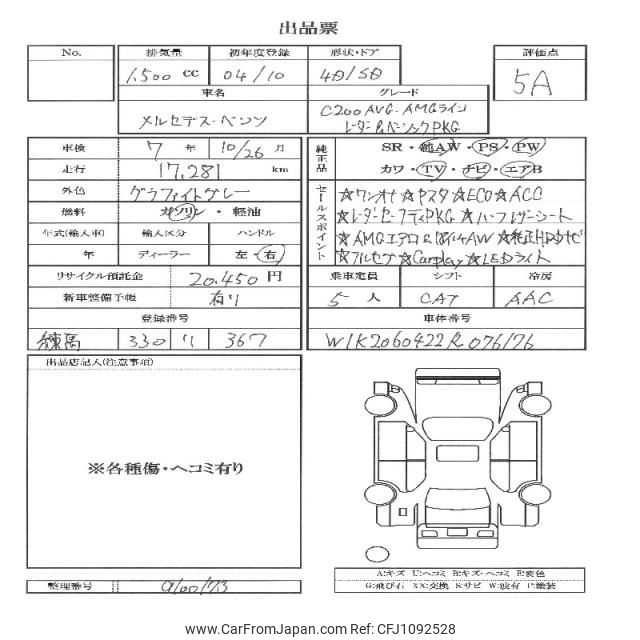 出品票
No.
排気量 初年度登録 形状・ドア 評価点
1.500 cc 04/10 4D/5D 5A
車名 グレード
メルセデス・ベンツ C200AVG.AMGライン
レーダー&ベーシックPKG
車検 7年 10/26月
走行 17,281 km
外色 グラファイトグレー
燃料 ガソリン・軽油
年式(輸入車) 輸入区分 ハンドル
年 ディーラー 左・右
リサイクル預託金 20.450円
新車整備手帳 有り
登録番号
練馬 330 り 367
純正品
SR・純AW・PS・PW
カワ・TV・ナビ・エアB
セールスポイント
☆ワンオナ ☆ヤスタ ☆ECO ☆ACC
☆レーダーセーフティPKG ☆ハーフレザーシート
☆AMGエアロ&
AW ☆純正HDDナビ
☆フルセグ ☆Carplay ☆LEDライト
乗車定員 シフト 冷房
5人 CAT AAC
車体番号
W1K2060422R076176
出品店記入(注意事項)
※各種傷・ヘコミ有り
整理番号 9100173
A:キズ U:ヘコミ B:キズ・ヘコミ E:変色
G:飛び石 XX:交換 S:サビ W:波有 P:塗装
www.CarFromJapan.com | Photo ID: CFJ1092528